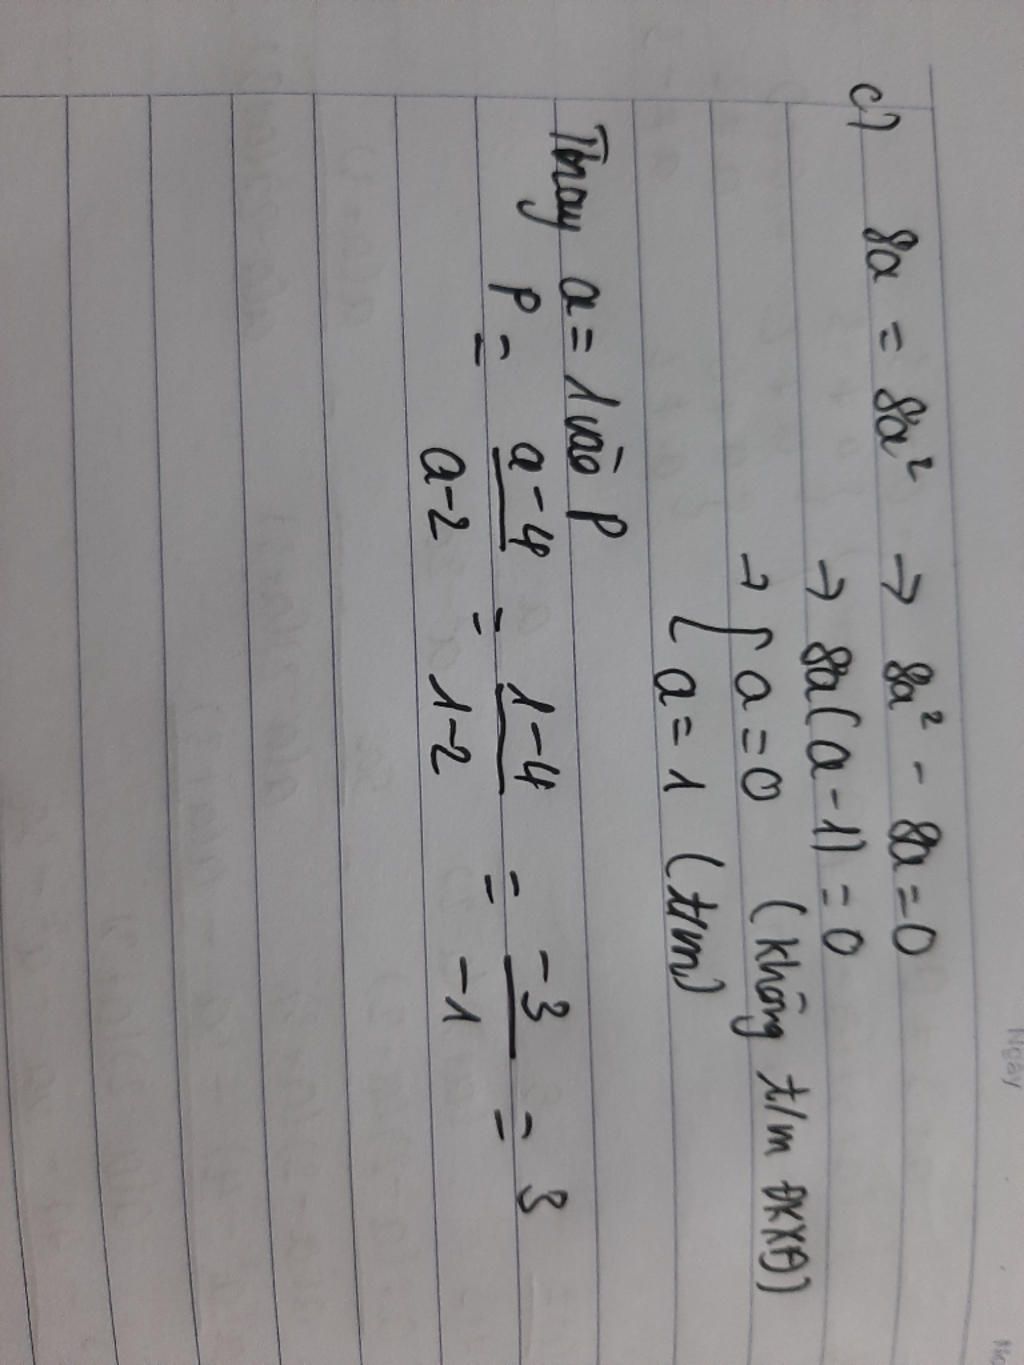 Ngày
No
c) 8a = 8a² → 8a² - 8a = 0
→ 8a(a-1) = 0
→ [ a = 0 (không t/m ĐKXĐ)
a = 1 (t/m)
Thay a = 1 vào P
P = a-4/a-2 = 1-4/1-2 = -3/-1 = 3